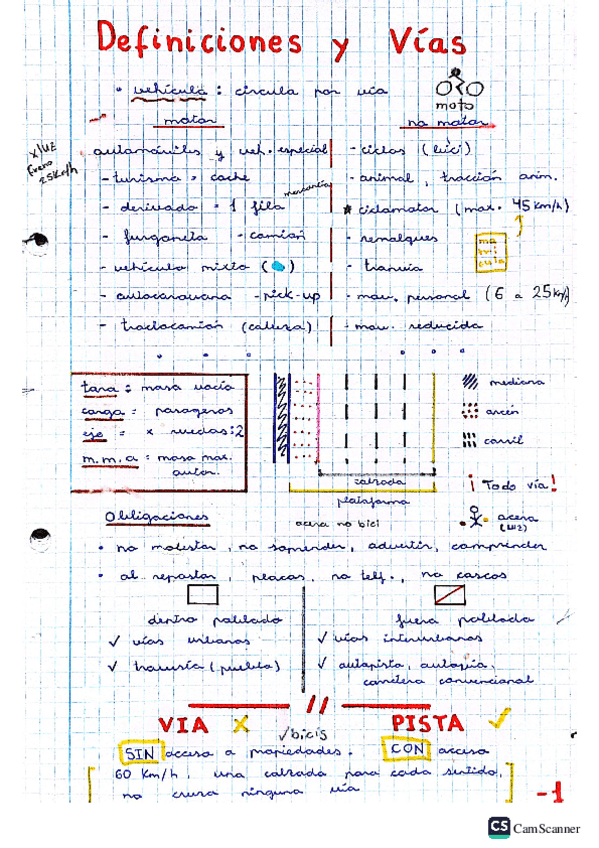 Definiciones y Vías
• vehículo : circula por vía
moto
motor
no motor
x/uz fuera 25Km/h
automóviles y veh. especial
- turismo = coche
- derivado = 1 fila
mercancías
- furgoneta - camión
- vehículo mixto ( )
- autocaravana - pick-up
- tractocamión (cabeza)
- ciclos (luci)
- animal, tracción anim.
* ciclomotor (max. 45 Km/h)
- remolques
ma
tri
cula
- tranvía
- mov. personal (6 a 25Km/h
- mov. reducida
tara : masa vacía
carga = pasajeros
eje = x ruedas:2
m.m.a : masa max.
autor.
calzada
plataforma
mediana
arcén
carril
¡ Todo vía !
acera
(luz)
Obligaciones
acera no bici
• no molestar, no sorprender, advertir, comprender
• al repostar, placas, no telf., no cascos
dentro poblado
✓ vías urbanas
✓ travesía (pueblo)
fuera poblado
✓ vías interurbanas
✓ autopista, autovía,
carretera convencional
VIA X
✓bicis
PISTA ✓
SIN acceso a propiedades.
CON acceso
60 Km/h, una calzada para cada sentido,
no cruza ninguna vía
-1
CS CamScanner